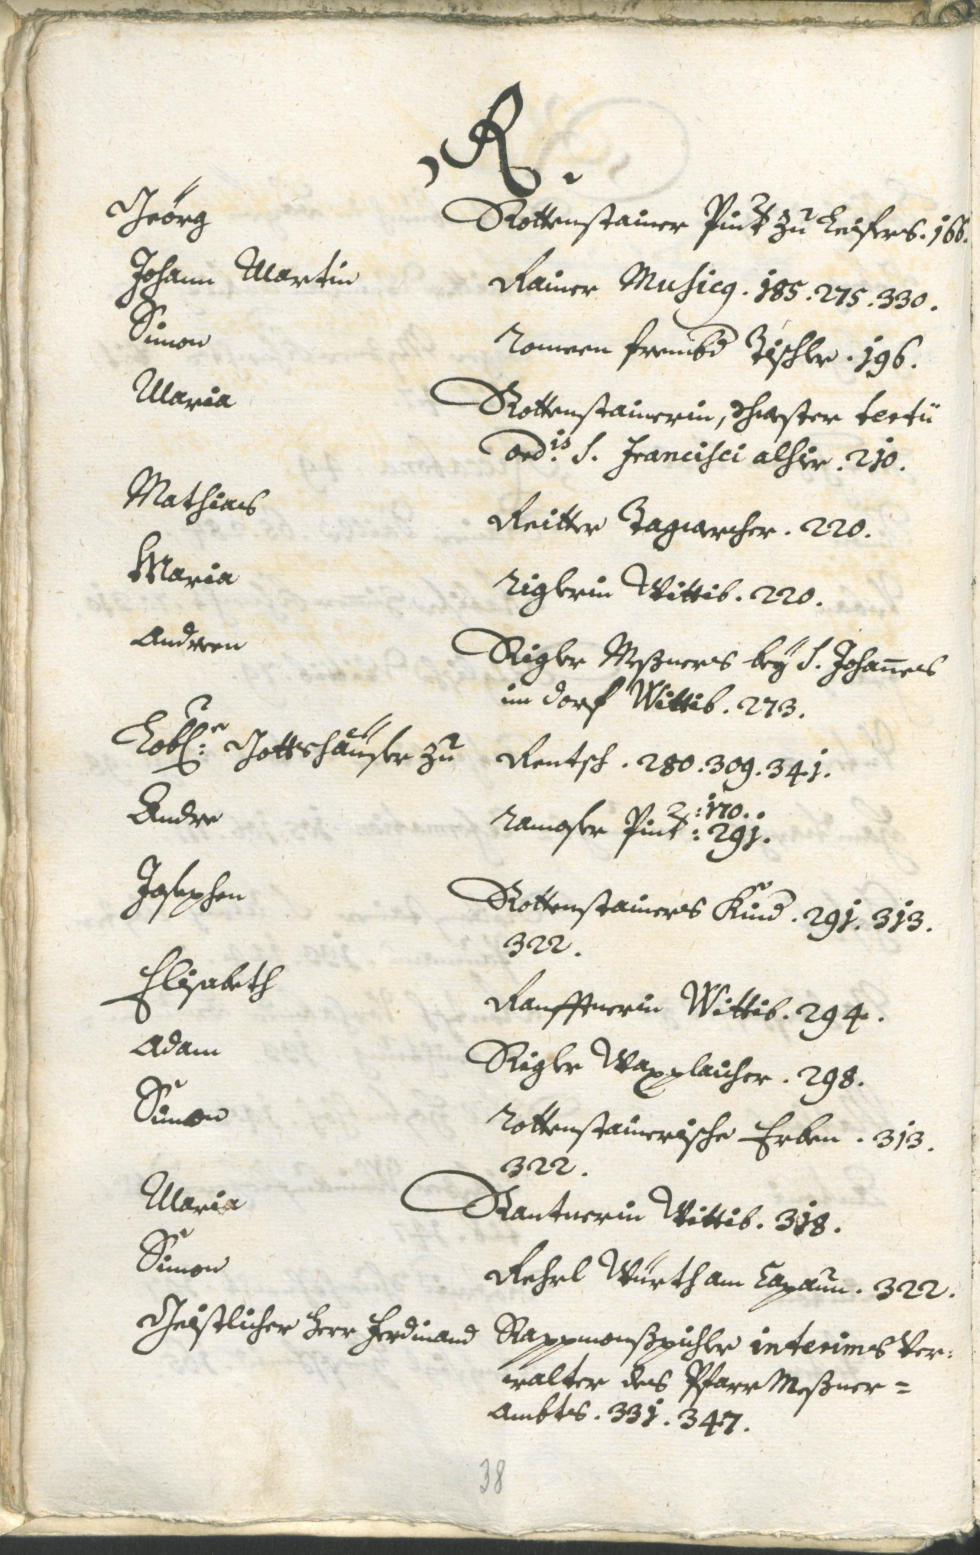 R.
Geörg Rottenstainer Pint zu Leifers. 166.
Johann Martin Rainer Musicg. 185. 275. 330.
Simon Romeen frembd Tischler. 196.
Maria Rottenstainerin, Schwester tertii
ord:is S. Francisci alhier. 210.
Mathias Reitter Tagwercher. 220.
Maria Riglerin Wittib. 220.
Andreen Rigler Meßners bey S. Johannes
im dorf Wittib. 273.
Löbl: Gottshäuser zu Rentsch. 280. 309. 341.
Andre Ramoser Pint: 170. 291.
Josephen Rottenstainers Kind. 291. 313.
322.
Elisabeth Rauffnerin Wittib. 294.
Adam Rigler Waxplaicher. 298.
Simon Rottenstainerische Erben. 313.
322.
Maria Rantnerin Wittib. 318.
Simon Rehrl Würth am Capaun. 322.
Geistlicher Herr Ferdinand Rappmonßpichler interims Ver:
walter des Pfarr Meßner=
Ambts. 331. 347.
38